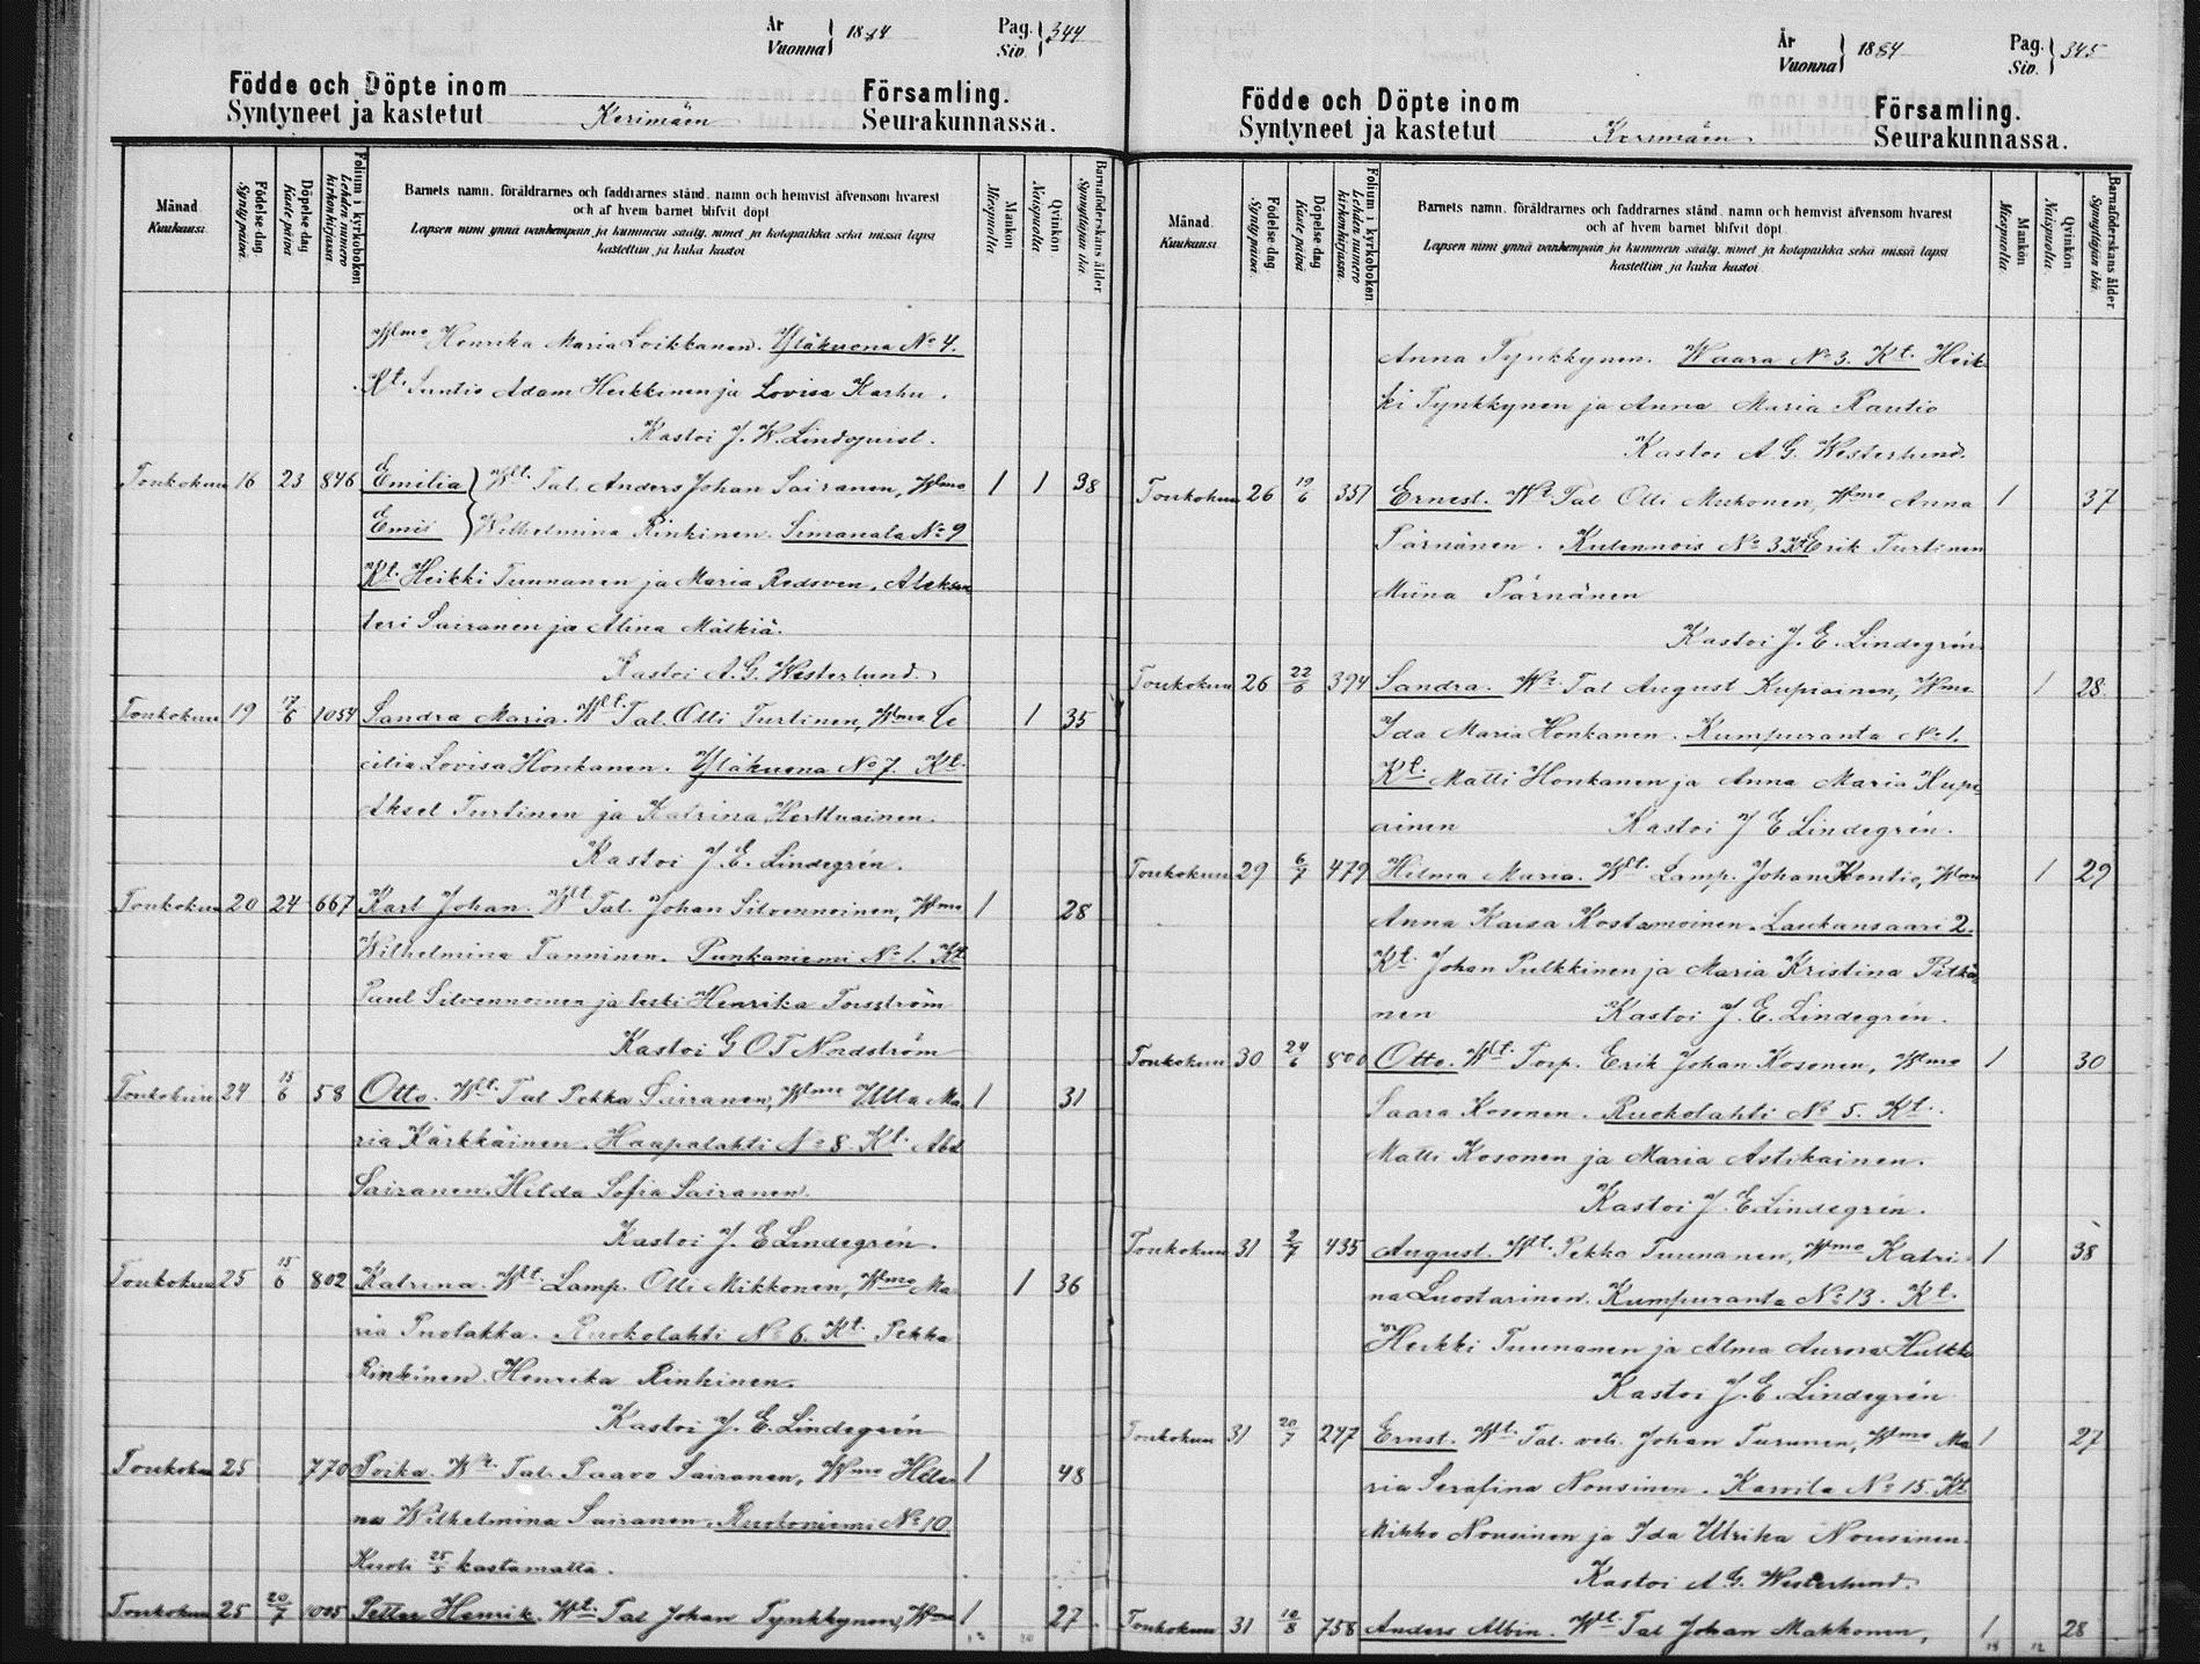 År Vuonna 1884 Pag. Siv. 344
Födde och Döpte inom Församling.
Syntyneet ja kastetut Kerimäen Seurakunnassa.
Månad Kuukausi
Födelse dag Synty päivä
Döpelse dag Kaste päivä
Folium i kyrkoboken Lehden numero kirkonkirjassa
Barnets namn, föräldrarnes och faddrarnes stånd, namn och hemvist äfvensom hvarest
och af hvem barnet blifvit döpt
Lapsen nimi ynnä vanhempain ja kummein sääty, nimet ja kotopaikka sekä missä lapsi
kastettiin ja kuka kastoi
Mankön Miespuolta
Qvinkön Naispuolta
Barnaföderskans ålder Synnyttäjän ikä
Wmo Henrika Maria Loikkanen. Yläkuona No 4.
Kt. Suntio Adam Heikkinen ja Lovisa Karhu.
Kastoi J. W. Lindqvist.
Toukokuu 16 23 846 Emilia Wlt. Tal. Anders Johan Sairanen, Wmo 1 1 38
Emil Wilhelmina Rinkinen. Simanala No 9
Kt. Heikki Tuunanen ja Maria Redsven, Aleksan
teri Sairanen ja Alina Mälkiä.
Kastoi A. G. Westerlund.
Toukokuu 19 17/6 1054 Sandra Maria. Wlt. Tal. Olli Turtinen, Wmo Ce 1 35
cilia Lovisa Honkanen. Yläkuona No 7. Kt.
Aksel Turtinen ja Katrina Herttuainen.
Kastoi J. E. Lindegrén.
Toukokuu 20 24 667 Karl Johan. Wlt Tal. Johan Silvennoinen, Wmo 1 28
Wilhelmina Tanninen. Punkaniemi No 1. Kt
Paul Silvennoinen ja leski Henrika Forsström
Kastoi G O T Nordström
Toukokuu 24 15/6 58 Otto. Wlt. Tal Pekka Sairanen, Wmo Ulla Ma 1 31
ria Kärkkäinen. Haapalahti No 8. Kt. Abel
Sairanen, Hilda Sofia Sairanen.
Kastoi J. E Lindegrén.
Toukokuu 25 15/6 802 Katrina. Wlt. Lamp. Olli Mikkonen, Wmo Ma 1 36
ria Puolakka. Ruokolahti No 6. Kt. Pekka
Rinkinen, Henrika Rinkinen.
Kastoi J. E. Lindegrén
Toukoku 25 770 Poika. Wt. Tal. Paavo Sairanen, Wmo Hele 1 48
na Wilhelmina Sairanen. Ruokoniemi No 10.
Kuoli 25/5 kastamatta.
Toukokuu 25 20/7 1005 Petter Henrik. Wt. Tal Johan Tynkkynen, Wmo 1 27
År Vuonna 1884 Pag. Siv. 345
Födde och Döpte inom Församling.
Syntyneet ja kastetut Kerimäen. Seurakunnassa.
Månad Kuukausi
Födelse dag Synty päivä
Döpelse dag Kaste päivä
Folium i kyrkoboken Lehden numero kirkonkirjassa
Barnets namn, föräldrarnes och faddrarnes stånd, namn och hemvist äfvensom hvarest
och af hvem barnet blifvit döpt
Lapsen nimi ynnä vanhempain ja kummein sääty, nimet ja kotopaikka sekä missä lapsi
kastettiin ja kuka kastoi
Mankön Miespuolta
Qvinkön Naispuolta
Barnaföderskans ålder Synnyttäjän ikä
Anna Tynkkynen. Waara No 3. Kt. Heik
ki Tynkkynen ja Anna Maria Rautio
Kastoi A. G. Westerlund.
Toukokuu 26 19/6 357 Ernest. Wt. Tal Olli Muhonen, Wmo Anna 1 37
Pärnänen. Kulennois No 3 Kt Erik Turtinen
Miina Pärnänen
Kastoi J. E. Lindegrén.
Toukokuu 26 22/6 394 Sandra. Wt. Tal August Kupiainen, Wmo 1 28
Ida Maria Honkanen. Kumpuranta No 1.
Kt. Matti Honkanen ja Anna Maria Kupi
ainen Kastoi J E Lindegrén.
Toukokuu 29 6/7 479 Hilma Maria. Wlt. Lamp. Johan Kontio, Wmo 1 29
Anna Kaisa Kostamoinen. Laukansaari 2.
Kt. Johan Pulkkinen ja Maria Kristina Pitkä
nen Kastoi J. E. Lindegrén.
Toukokuu 30 24/6 800 Otto. Wlt. Torp. Erik Johan Kosonen, Wmo 1 30
Saara Kosonen. Ruokolahti No 5. Kt.
Matti Kosonen ja Maria Astikainen.
Kastoi J. E Lindegrén.
Toukokuu 31 2/7 435 August. Wlt. Pekka Tuunanen, Wmo Katri 1 38
na Luostarinen. Kumpuranta No 13. Kt.
Heikki Tuunanen ja Alma Aurora Hulkko
Kastoi J. E. Lindegrén
Toukokuu 31 20/7 247 Ernst. Wlt. Tal. veli Johan Turunen, Wmo Ma 1 27
ria Serafina Nousinen. Karvila No 15. Kt
Mikko Nousinen ja Ida Ulrika Nousinen.
Kastoi A. G. Westerlund.
Toukokuu 31 10/8 758 Anders Albin. Wlt Tal Johan Makkonen, 1 28